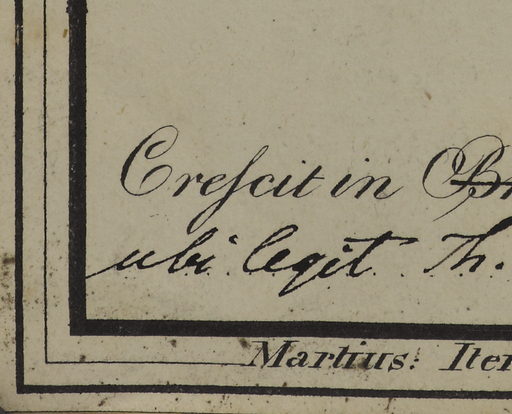 Creſcit in Br
ubi legit Th.
Martius: Iter